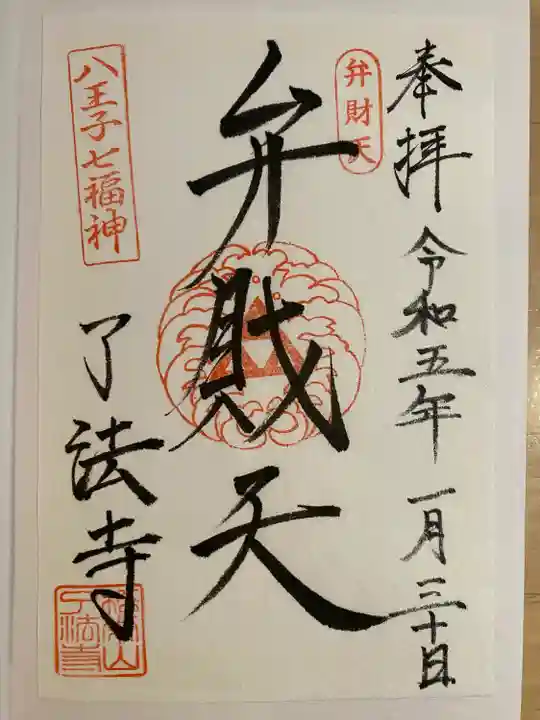 奉拝 令和五年 一月三十日
弁財天
弁財天
八王子七福神
了法寺
了法寺